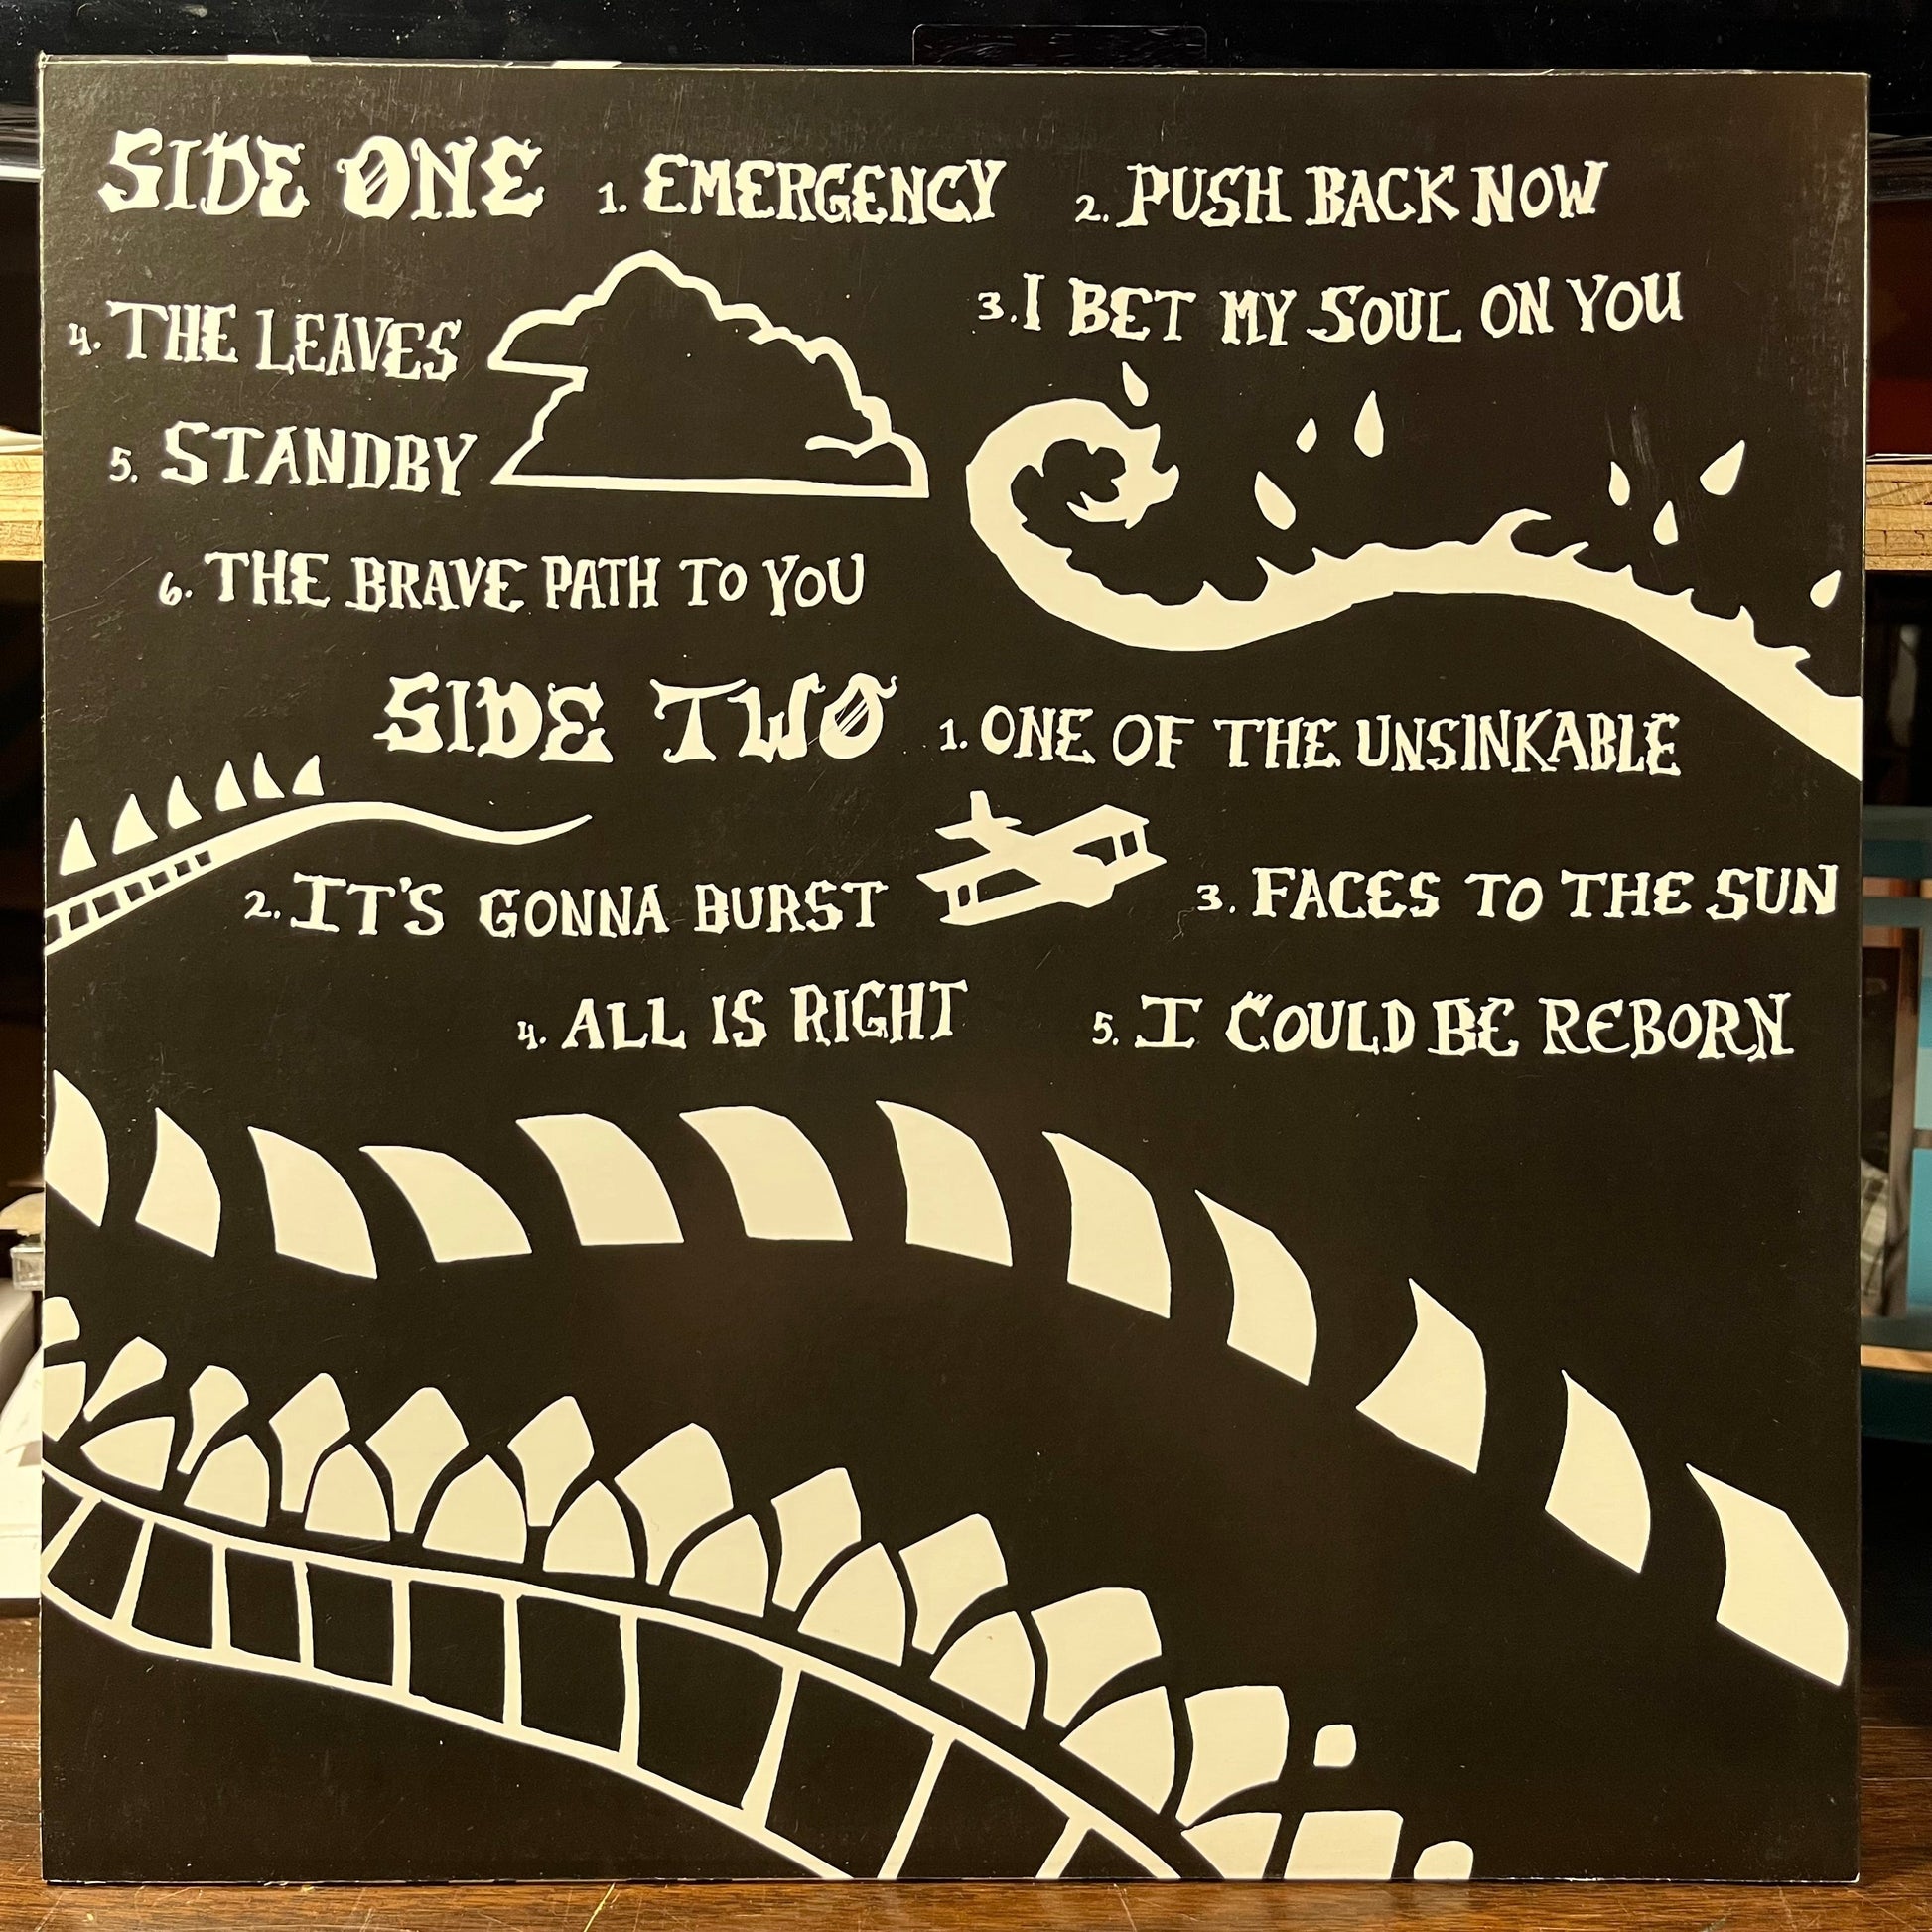 SIDE ONE 1. EMERGENCY 2. PUSH BACK NOW
3. I BET MY SOUL ON YOU
4. THE LEAVES
5. STANDBY
6. THE BRAVE PATH TO YOU
SIDE TWO 1. ONE OF THE UNSINKABLE
2. IT'S GONNA BURST 3. FACES TO THE SUN
4. ALL IS RIGHT 5. I COULD BE REBORN